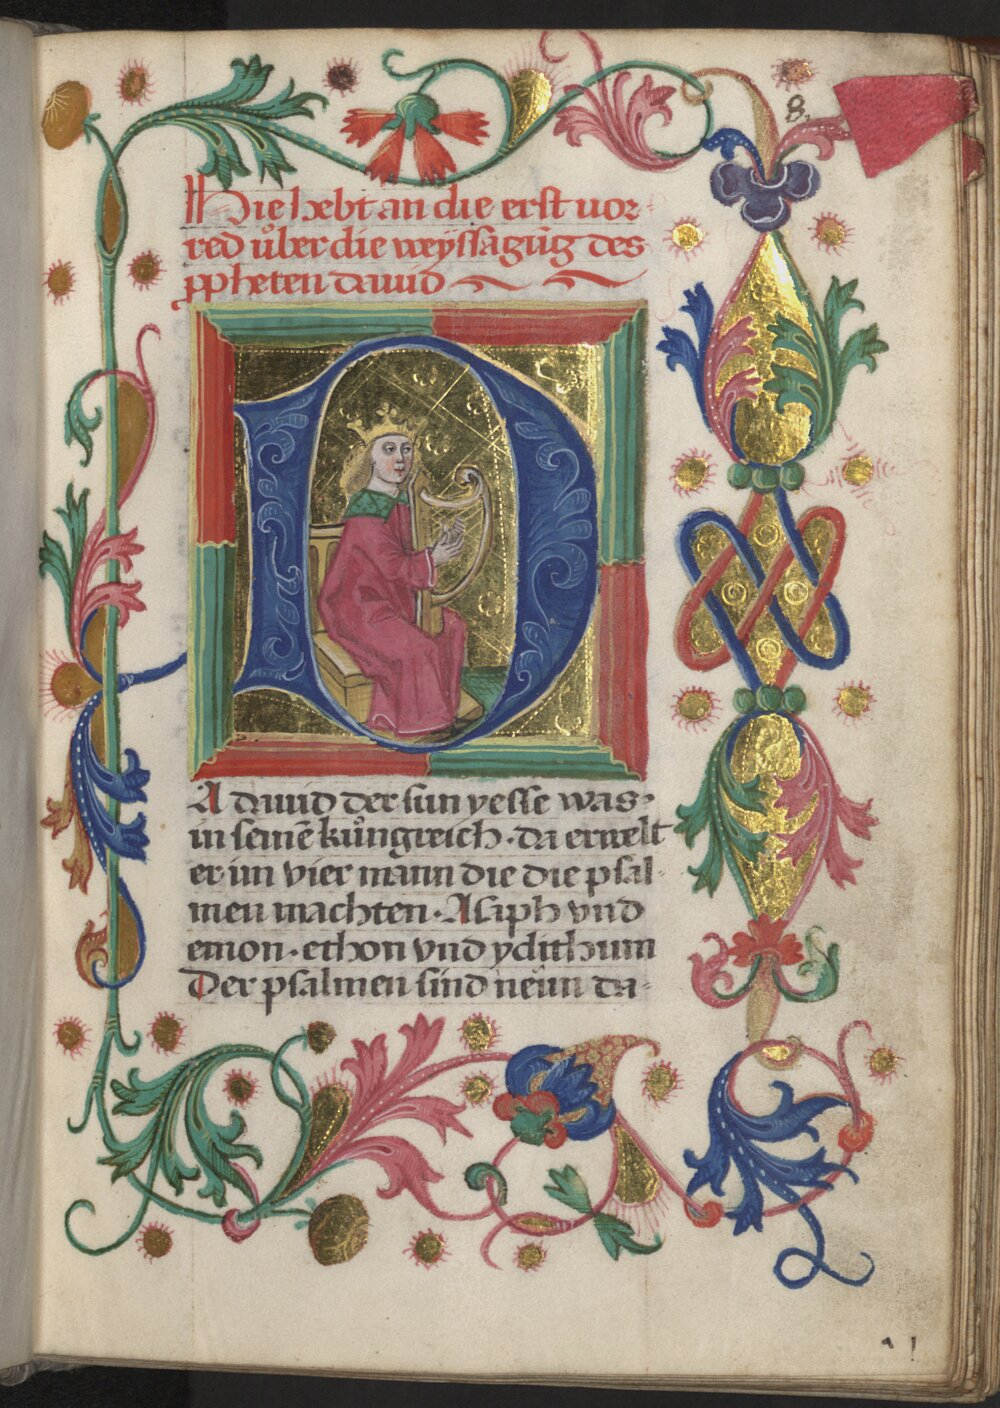 8.
Hie hebt an die erst vor-
red uͦber die weyssagūg des
ppheten dauid
D
A dauid der sun yesse was
in seinē kuͦngreich · da erwelt
er im vier mann die die psal-
men machten · Asaph vnd
emon · ethon vnd ydithum
Der psalmen sind neün da-